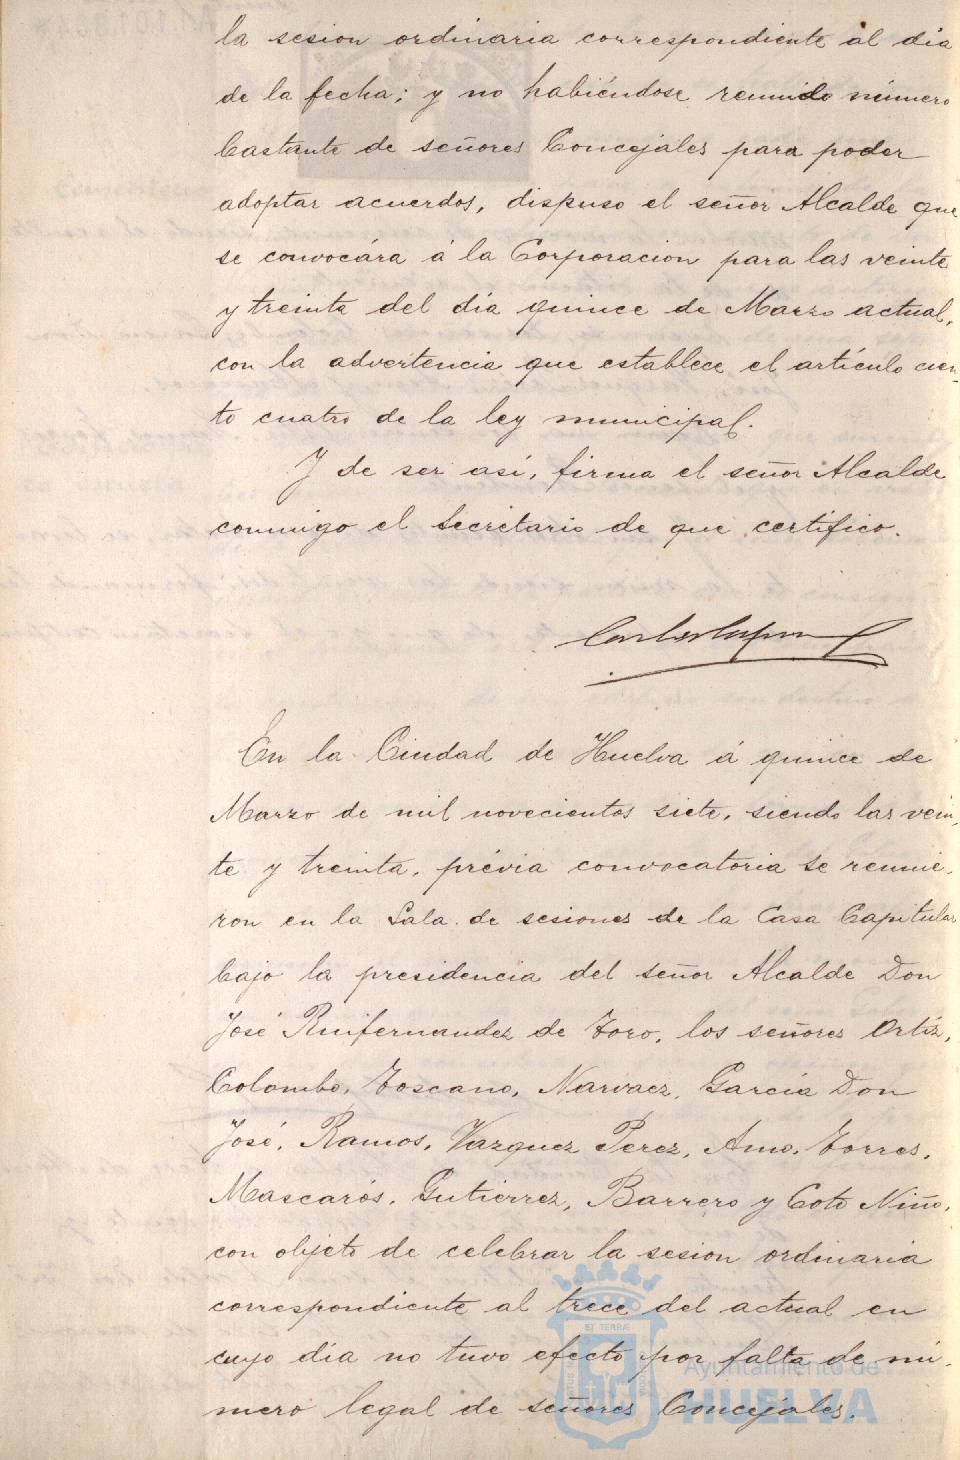 la sesion ordinaria correspondiente al dia
de la fecha; y no habiéndose reunido número
bastante de señores Concejales para poder
adoptar acuerdos, dispuso el señor Alcalde que
se convocára á la Corporacion para las veinte
y treinta del dia quince de Marzo actual,
con la advertencia que establece el artículo cien-
to cuatro de la ley municipal.
Y de ser así, firma el señor Alcalde
conmigo el Secretario de que certifico.
En la Ciudad de Huelva á quince de
Marzo de mil novecientos siete, siendo las vein-
te y treinta, prévia convocatoria se reunie-
ron en la Sala de sesiones de la Casa Capitular
bajo la presidencia del señor Alcalde Don
José Ruifernandez de Toro, los señores Ortiz,
Colombo, Toscano, Narvaez, García Don
José, Ramos, Vazquez Perez, Amo, Torres,
Mascarós, Gutiérrez, Barrero y Coto Niño,
con objeto de celebrar la sesion ordinaria
correspondiente al trece del actual en
cuyo dia no tuvo efecto por falta de nú-
mero legal de señores Concejales.
Ayuntamiento de
HUELVA